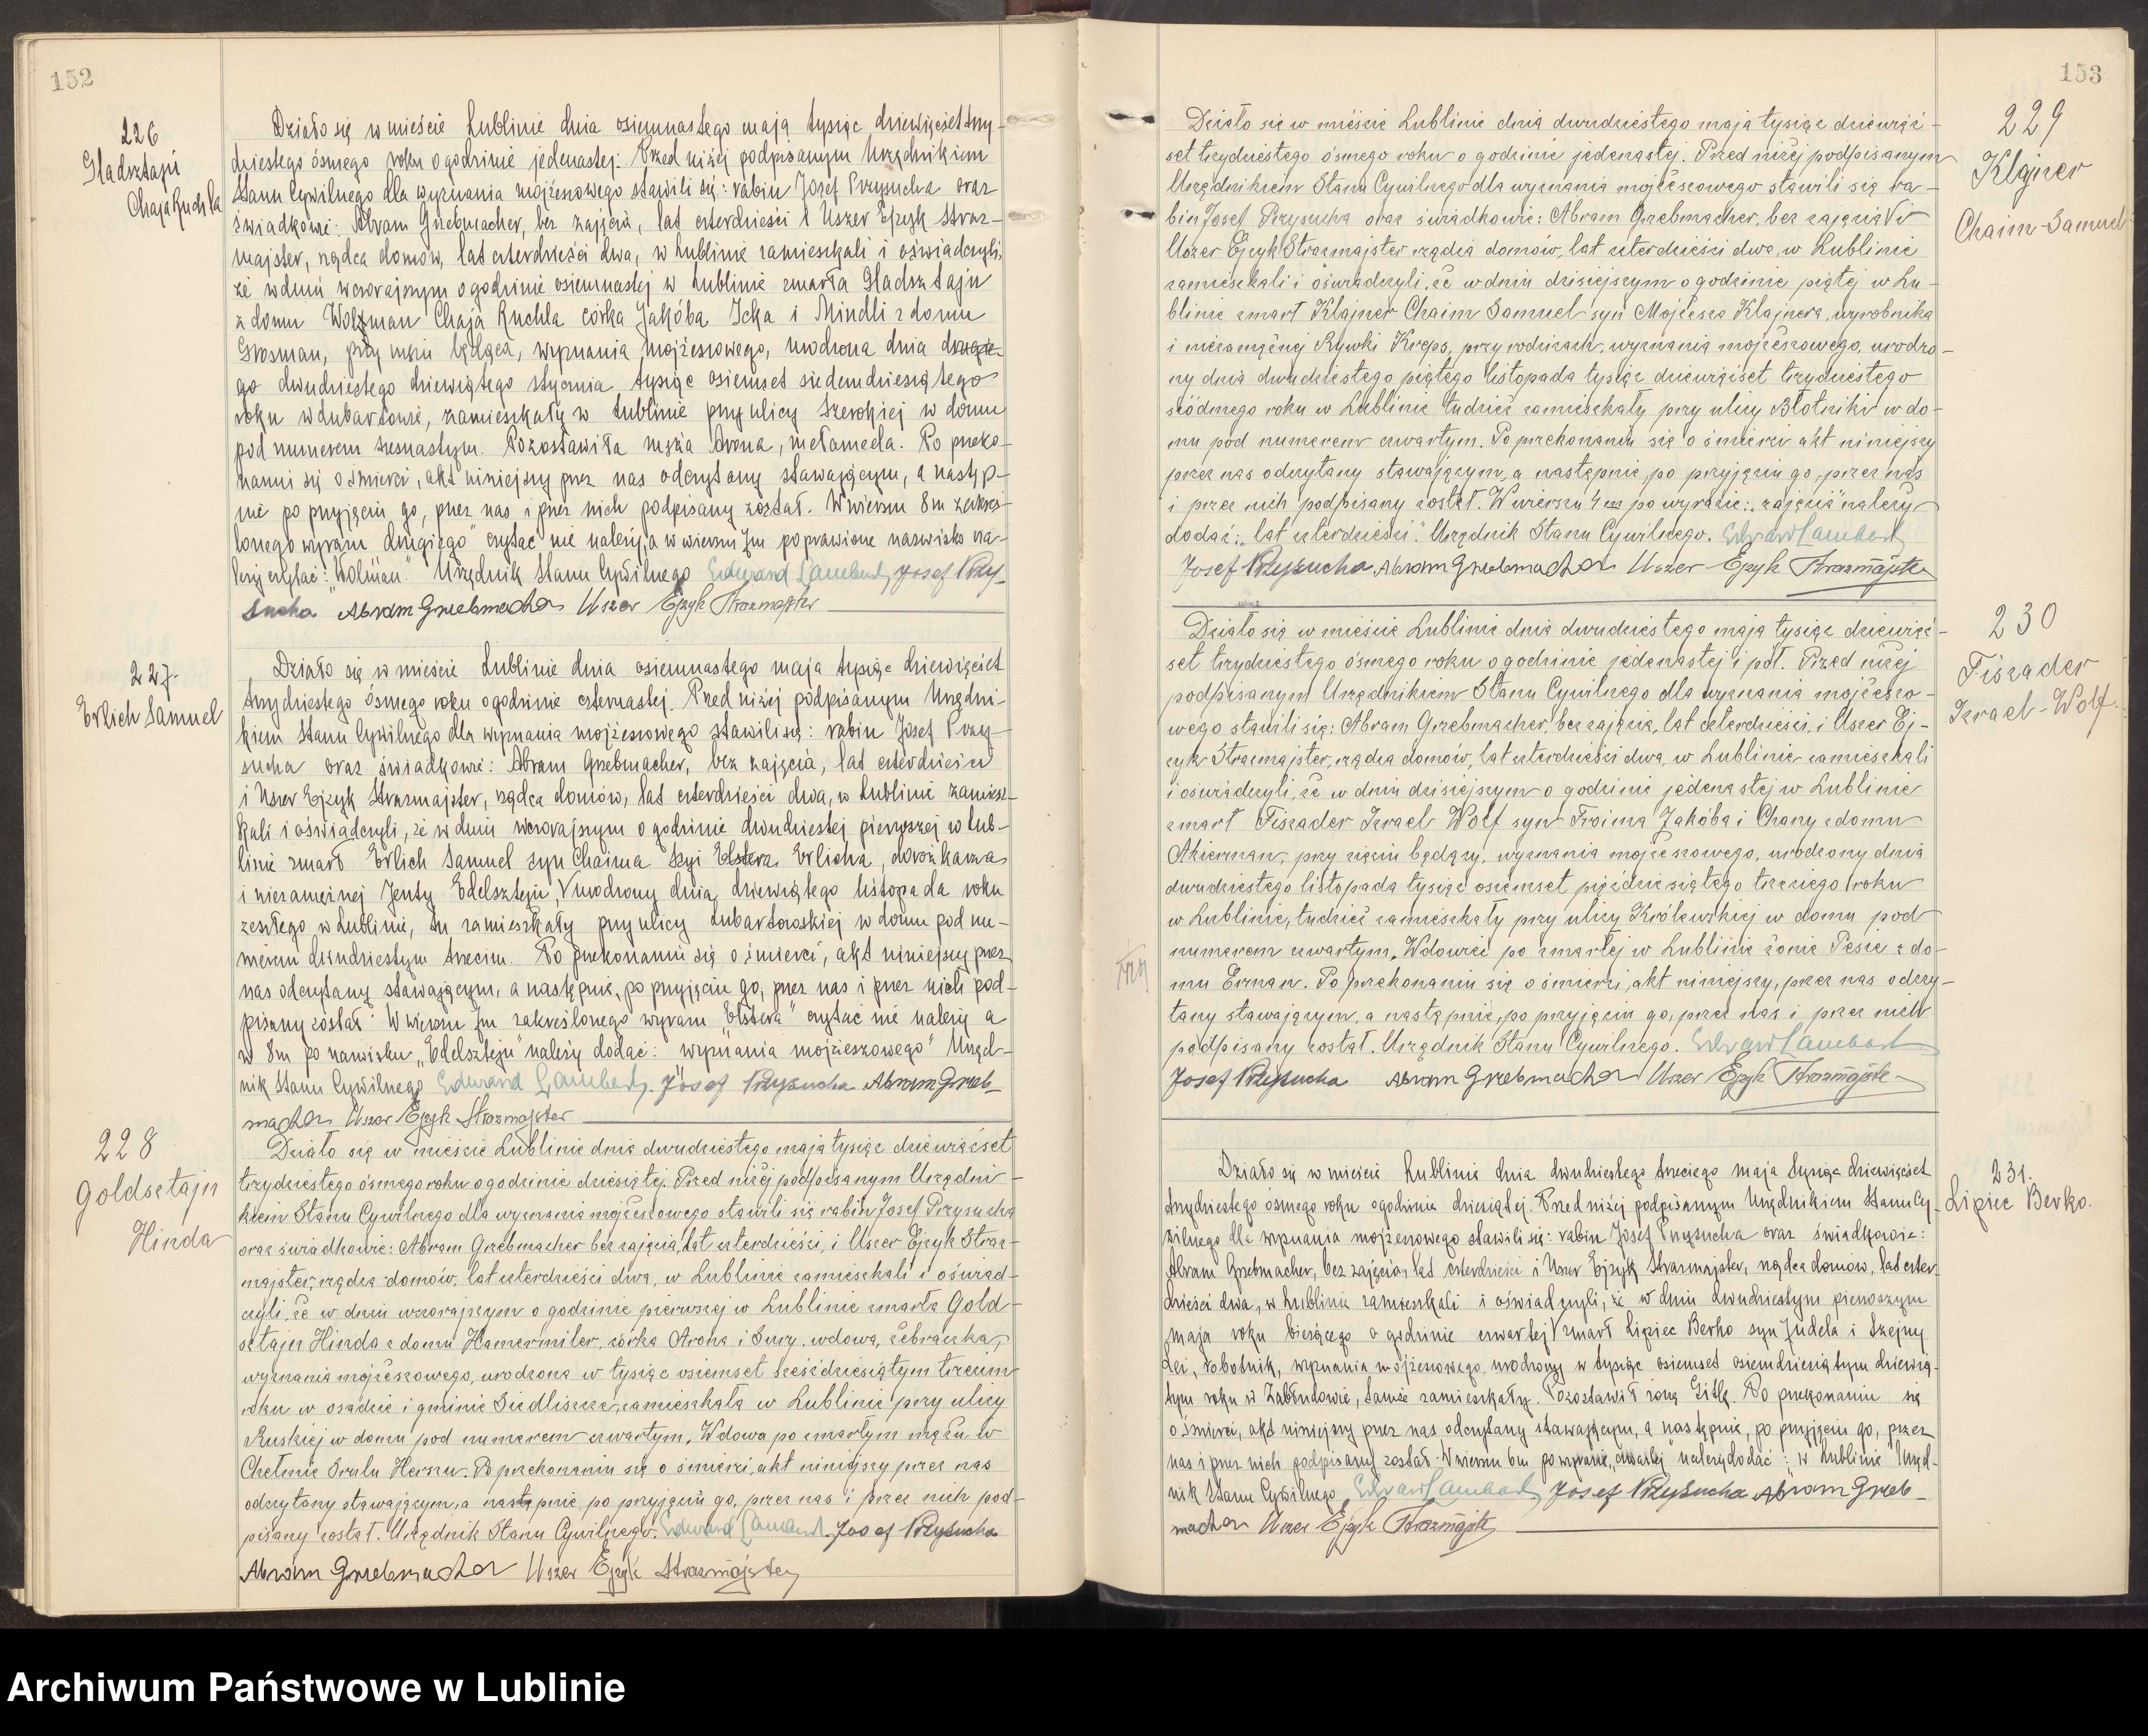 152
226
Gladsztajn
Chaja Ruchla
Działo się w mieście Lublinie dnia osiemnastego maja tysiąc dziewięćset trzy-
dziestego ósmego roku o godzinie jedenastej. Przed niżej podpisanym Urzędnikiem
Stanu Cywilnego dla wyznania mojżeszowego stawili się: rabin Josef Przysucha oraz
świadkowie: Abram Grzebmacher, bez zajęcia, lat czterdzieści i Uszer Ejzyk Straz-
majster, rządca domów, lat czterdzieści dwa, w Lublinie zamieszkali i oświadczyli,
że w dniu wczorajszym o godzinie osiemnastej w Lublinie zmarła Gladsztajn
z domu Wolman Chaja Ruchla córka Jakóba Icka i Mindli z domu
Grosman, przy mężu będąca, wyznania mojżeszowego, urodzona dnia drugie-
go dwudziestego dziewiątego stycznia tysiąc osiemset siedemdziesiątego
roku w Lubartowie, zamieszkały w Lublinie przy ulicy Szerokiej w domu
pod numerem szesnastym. Pozostawiła męża Arona, mełameda. Po przeko-
naniu się o śmierci, akt niniejszy przez nas odczytany stawającym, a następ-
nie po przyjęciu go, przez nas i przez nich podpisany został. W wierszu 8m zakreś-
lonego wyrazu "drugiego" czytać nie należy, a w wierszu 7m poprawione nazwisko na-
leży czytać: "Wolman." Urzędnik Stanu Cywilnego Edward Lambert, Josef Przy-
sucha Abram Grzebmacher Uszer Ejzyk Strazmajster
227.
Erlich Samuel
Działo się w mieście Lublinie dnia osiemnastego maja tysiąc dziewięćset
trzydziestego ósmego roku o godzinie czternastej. Przed niżej podpisanym Urzędni-
kiem Stanu Cywilnego dla wyznania mojżeszowego stawili się: rabin Josef Przy-
sucha oraz świadkowie: Abram Grzebmacher, bez zajęcia, lat czterdzieści
i Uszer Ejzyk Strazmajster, rządca domów, lat czterdzieści dwa, w Lublinie zamiesz-
kali i oświadczyli, że w dniu wczorajszym o godzinie dwudziestej pierwszej w Lub-
linie zmarł Erlich Samuel syn Chaima Szyi Elstera Erlicha, dorożkarza
i niezamężnej Jenty Edelsztejn, V urodzony dnia dziewiątego listopada roku
zeszłego w Lublinie, tu zamieszkały przy ulicy Lubartowskiej w domu pod nu-
merem dwudziestym trzecim. Po przekonaniu się o śmierci, akt niniejszy przez
nas odczytany stawającym, a następnie, po przyjęciu go, przez nas i przez nich pod-
pisany został. W wierszu 7m zakreślonego wyrazu "Elstera" czytać nie należy a
w 8m po nazwisku "Edelsztejn" należy dodać: "wyznania mojżeszowego" Urzęd-
nik Stanu Cywilnego Edward Lambert. Josef Przysucha Abram Grzeb-
macher Uszer Ejzyk Strazmajster
228
Goldsztajn
Hinda
Działo się w mieście Lublinie dnia dwudziestego maja tysiąc dziewięćset
trzydziestego ósmego roku o godzinie dziesiątej. Przed niżej podpisanym Urzędni-
kiem Stanu Cywilnego dla wyznania mojżeszowego stawili się rabin Josef Przysucha
oraz świadkowie: Abram Grzebmacher bez zajęcia, lat czterdzieści, i Uszer Ejzyk Straz-
majster, rządca domów, lat czterdzieści dwa, w Lublinie zamieszkali i oświad-
czyli, że w dniu wczorajszym o godzinie pierwszej w Lublinie zmarła Gold-
sztajn Hinda z domu Hamermiler, córka Arona i Sury, wdowa, żebraczka,
wyznania mojżeszowego, urodzona w tysiąc osiemset sześćdziesiątym trzecim
roku w osadzie i gminie Siedliszcze, zamieszkała w Lublinie przy ulicy
Ruskiej w domu pod numerem czwartym. Wdowa po zmarłym mężu w
Chełmie Srulu Herszu. Po przekonaniu się o śmierci, akt niniejszy przez nas
odczytany stawającym, a następnie po przyjęciu go, przez nas i przez nich pod-
pisany został. Urzędnik Stanu Cywilnego. Edward Lambert. Josef Przysucha
Abram Grzebmacher Uszer Ejzyk Strazmajster
153
229
Klajner
Chaim-Samuel
Działo się w mieście Lublinie dnia dwudziestego maja tysiąc dziewięć-
set trzydziestego ósmego roku o godzinie jedenastej. Przed niżej podpisanym
Urzędnikiem Stanu Cywilnego dla wyznania mojżeszowego stawili się ra-
bin Josef Przysucha oraz świadkowie: Abram Grzebmacher, bez zajęcia V i
Uszer Ejzyk Strazmajster rządca domów, lat czterdzieści dwa, w Lublinie
zamieszkali i oświadczyli, że w dniu dzisiejszym o godzinie piątej w Lu-
blinie zmarł Klajner Chaim Samuel syn Mojżesza Klajnera, wyrobnika
i niezamężnej Rywki Kreps, przy rodzicach, wyznania mojżeszowego, urodzo-
ny dnia dwudziestego piątego listopada tysiąc dziewięćset trzydziestego
siódmego roku w Lublinie tudzież zamieszkały przy ulicy Błotniki w do-
mu pod numerem czwartym. Po przekonaniu się o śmierci akt niniejszy
przez nas odczytany stawającym, a następnie, po przyjęciu go, przez nas
i przez nich podpisany został. W wierszu 4em po wyrazie: "zajęcia" należy
dodać: "lat czterdzieści". Urzędnik Stanu Cywilnego. Edward Lambert
Josef Przysucha Abram Grzebmacher Uszer Ejzyk Strazmajster
230
Fiszader
Izrael-Wolf.
Działo się w mieście Lublinie dnia dwudziestego maja tysiąc dziewięć-
set trzydziestego ósmego roku o godzinie jedenastej i pół. Przed niżej
podpisanym Urzędnikiem Stanu Cywilnego dla wyznania mojżeszo-
wego stawili się: Abram Grzebmacher, bez zajęcia, lat czterdzieści, i Uszer Ej-
zyk Strazmajster, rządca domów, lat czterdzieści dwa, w Lublinie zamieszkali
i oświadczyli, że w dniu dzisiejszym o godzinie jedenastej w Lublinie
zmarł Fiszader Izrael Wolf syn Froima Jakóba i Chany z domu
Akierman, przy zięciu będący, wyznania mojżeszowego, urodzony dnia
dwudziestego listopada tysiąc osiemset pięćdziesiątego trzeciego roku
w Lublinie, tudzież zamieszkały przy ulicy Królewskiej w domu pod
numerem czwartym. Wdowiec po zmarłej w Lublinie żonie Pesie z do-
mu Erman. Po przekonaniu się o śmierci, akt niniejszy, przez nas odczy-
tany stawającym, a następnie, po przyjęciu go, przez nas i przez nich
podpisany został. Urzędnik Stanu Cywilnego. Edward Lambert
Josef Przysucha Abram Grzebmacher Uszer Ejzyk Strazmajster
231.
Lipiec Berko.
Działo się w mieście Lublinie dnia dwudziestego trzeciego maja tysiąc dziewięćset
trzydziestego ósmego roku o godzinie dziesiątej. Przed niżej podpisanym Urzędnikiem Stanu Cy-
wilnego dla wyznania mojżeszowego stawili się: rabin Josef Przysucha oraz świadkowie:
Abram Grzebmacher, bez zajęcia, lat czterdzieści i Uszer Ejzyk Strazmajster, rządca domów, lat czter-
dzieści dwa, w Lublinie zamieszkali i oświadczyli, że w dniu dwudziestym pierwszym
maja roku bieżącego o godzinie czwartej V zmarł Lipiec Berko syn Judela i Szejny
Lei, robotnik, wyznania mojżeszowego, urodzony w tysiąc osiemset osiemdziesiątym dziewią-
tym roku w Zabłudowie, tamże zamieszkały. Pozostawił żonę Gitlę. Po przekonaniu się
o śmierci, akt niniejszy przez nas odczytany stawającym, a następnie, po przyjęciu go, przez
nas i przez nich podpisany został. W wierszu 6m po wyrazie, "czwartej" należy dodać: "w Lublinie" Urzęd-
nik Stanu Cywilnego, Edward Lambert, Josef Przysucha Abram Grzeb-
macher Uszer Ejzyk Strazmajster
Archiwum Państwowe w Lublinie